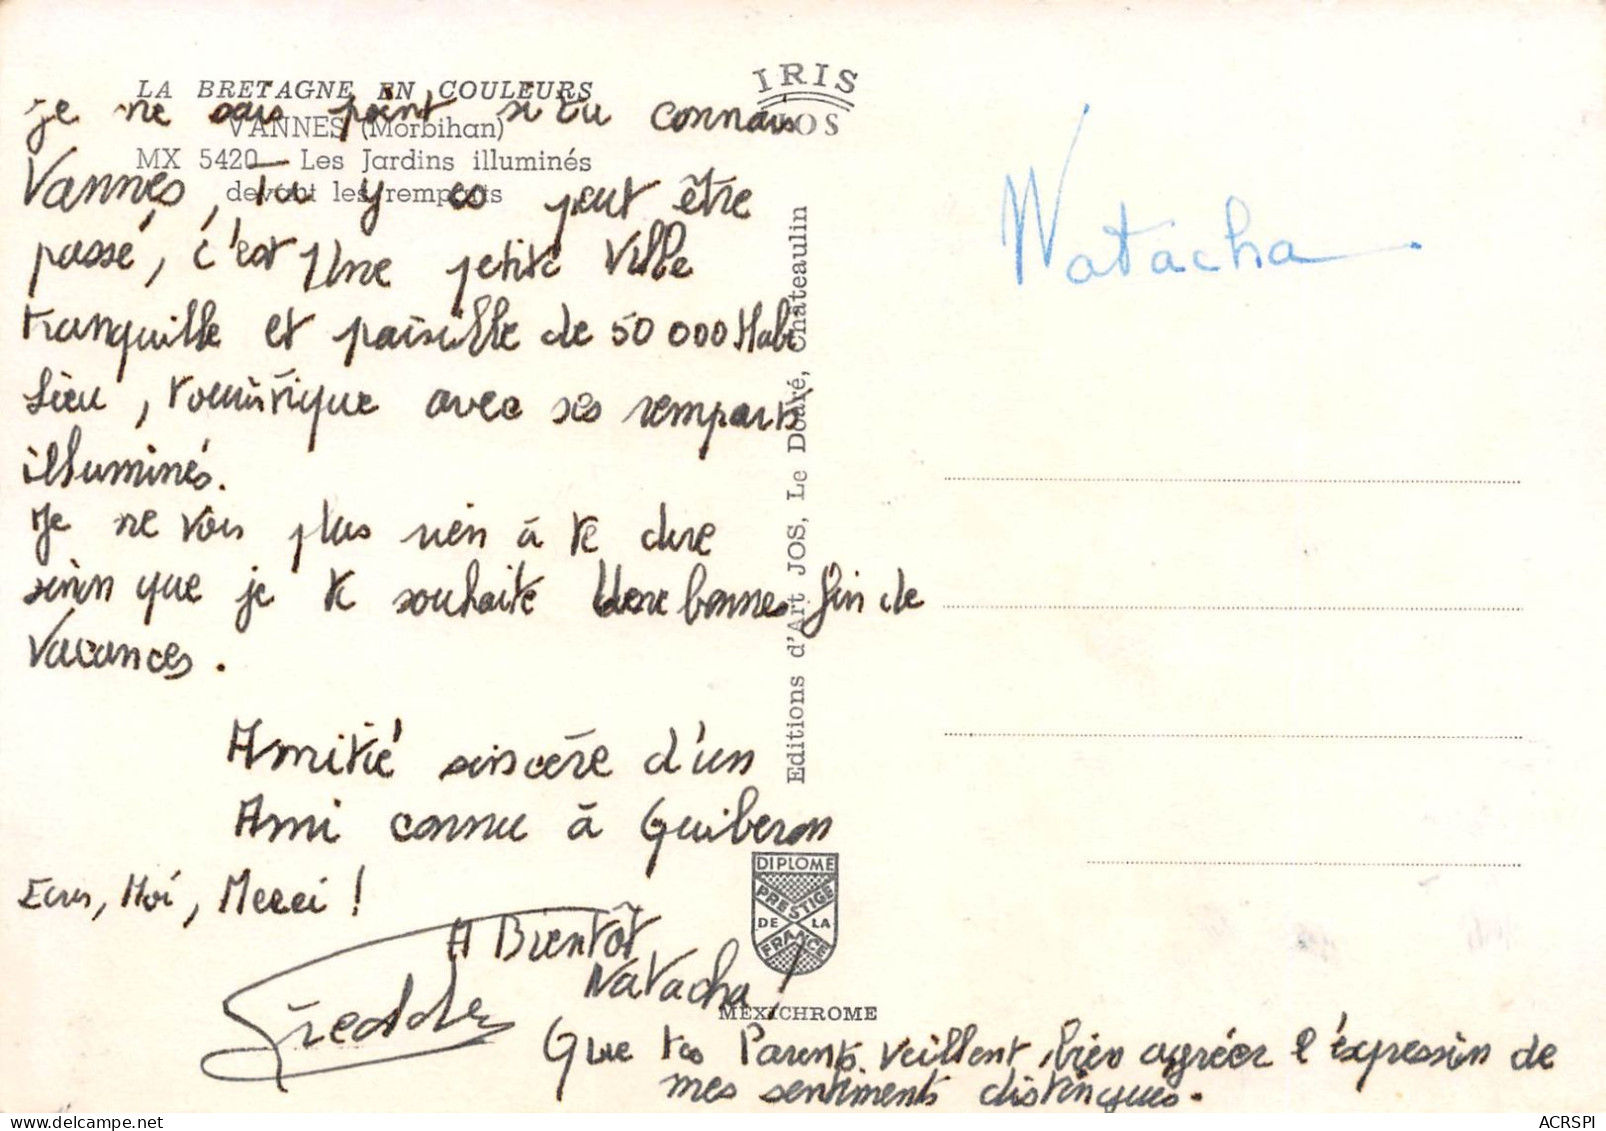 LA BRETAGNE EN COULEURS
VANNES (Morbihan)
MX 5420 - Les Jardins illuminés
devant les remparts
IRIS
JOS
je ne sais point si tu connais
Vannes, Tu y es peut être
passé, c'est Une petite Ville
tranquille et paisille de 50 000 Habi
lieu, romantique avec ses remparts
illuminés.
Je ne vois plus rien à te dire
sinon que je te souhaite Une bonnes fin de
Vacances.
Amitié sincère d'un
Ami connu à Guiberon
Ecris, Moi, Merci !
A Bientôt
Natacha !
Freddy
Que tes Parents veillent bien agréer l'éxpression de
mes sentiments distingues.
Natacha
Editions d'Art JOS, Le Doaré, Châteaulin
DIPLOME
PRESTIGE
DE LA
FRANCE
MEXICHROME
ACRSPI